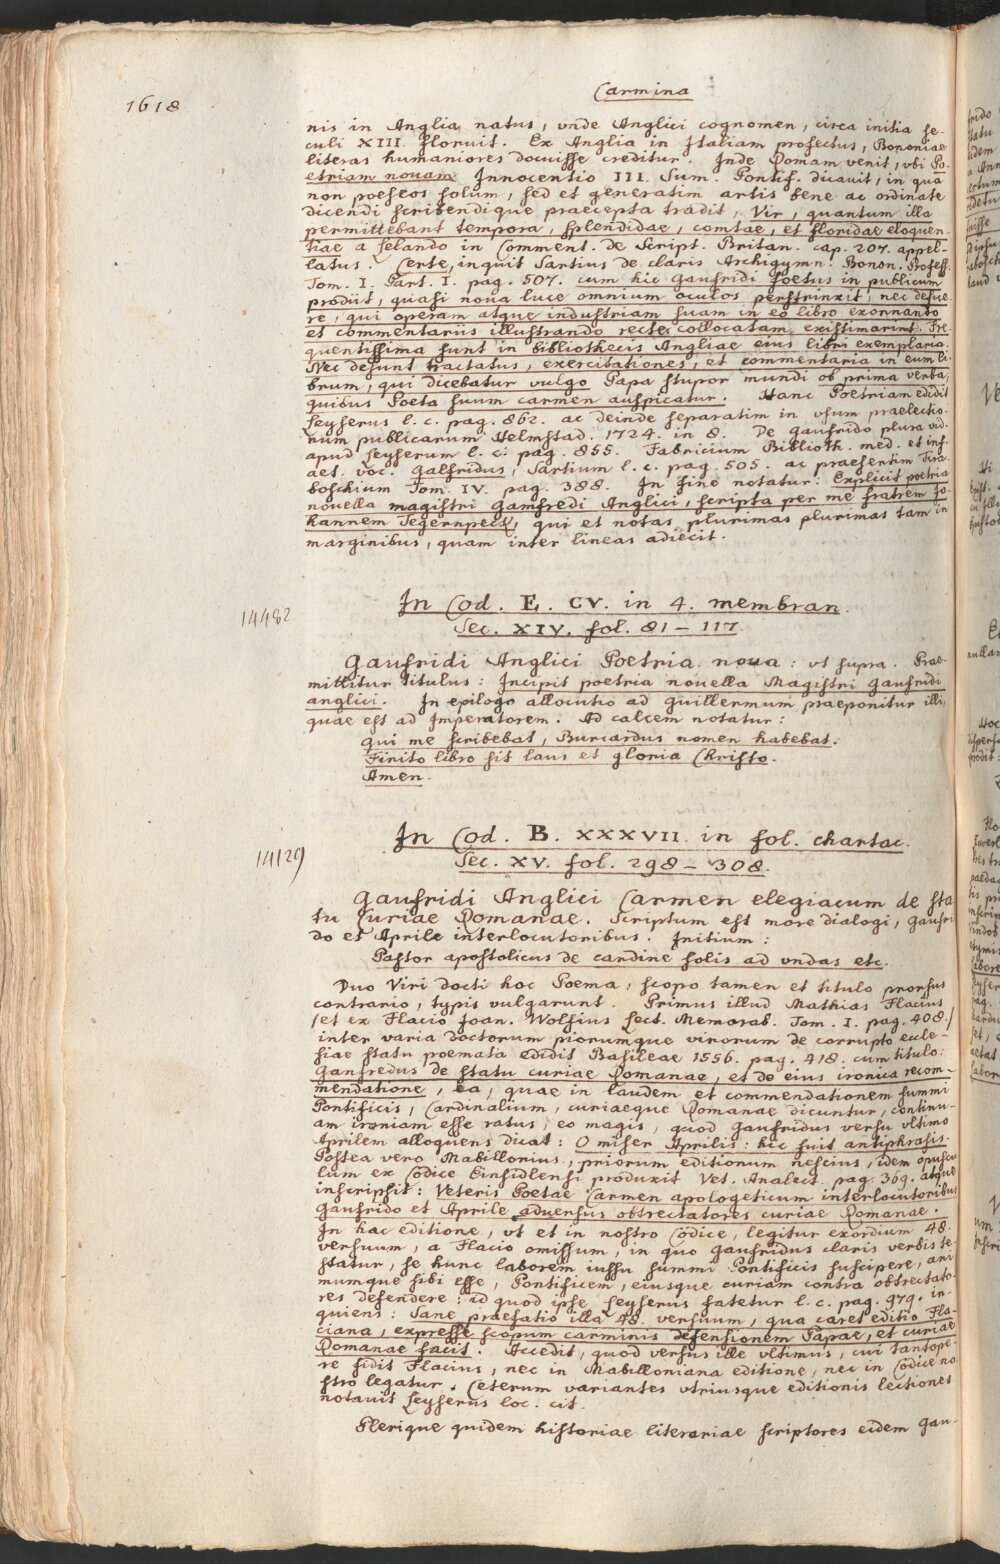 1618
Carmina
nis in Anglia natus, vnde Anglici cognomen, circa initia se-
culi XIII. floruit. Ex Anglia in Italiam profectus, Bononiae
literas humaniores docuisse creditur. Inde Romam venit, vbi Po-
etriam nouam Innocentio III. Sum. Pontif. dicauit, in qua
non poeseos solum, sed et generatim artis bene ac ordinate
dicendi scribendique praecepta tradit. Vir, quantum illa
permittebant tempora, splendidae, comtae, et floridae eloquen-
tiae a Lelando in Comment. de Script. Britan. cap. 207. appel-
latus. Certe, inquit Sartius de claris Archigymn. Bonon. Profess.
Tom. I. Part. I. pag. 507. cum hic Gaufridi foetus in publicum
prodiit, quasi noua luce omnium oculos perstrinxit, nec defue-
re, qui operam atque industriam suam in eo libro exornando
et commentariis illustrando recte collocatam existimarint. Fre-
quentissima sunt in bibliothecis Angliae eius libri exemplaria.
Nec desunt tractatus, exercitationes, et commentaria in eum li-
brum, qui dicebatur vulgo Papa stupor mundi ob prima verba,
quibus Poeta suum carmen auspicatur. Hanc Poetriam edidit
Leyserus l. c. pag. 862. ac deinde separatim in vsum praelectio-
num publicarum Helmstad. 1724. in 8. De Gaufrido plura vid.
apud Leyserum l. c. pag. 855. Fabricium Biblioth. med. et inf.
aet. voc. Galfridus, Sartium l. c. pag. 505. ac praesertim Tira-
boschium Tom. IV. pag. 388. In fine notatur: Explicit poetria
nouella magistri Gamfredi Anglici, scripta per me fratrem Jo-
hannem Tegernpeck, qui et notas plurimas plurimas tam in
marginibus, quam inter lineas adiecit.
14482
In Cod. E. CV. in 4. membran.
Sec. XIV. fol. 81 - 117.
Gaufridi Anglici Poetria noua: vt supra. Prae-
mittitur titulus: Incipit poetria nouella Magistri Gaufridi
anglici. In epilogo allocutio ad Guillermum praeponitur illi,
quae est ad Imperatorem. Ad calcem notatur:
Qui me scribebat, Burcardus nomen habebat.
Finito libro sit laus et gloria Christo.
Amen.
14129
In Cod. B. XXXVII. in fol. chartac.
Sec. XV. fol. 298 - 308.
Gaufridi Anglici Carmen elegiacum de sta
tu Curiae Romanae. Scriptum est more dialogi, Gaufri
do et Aprile interlocutoribus. Initium:
Pastor apostolicus de cardine solis ad vndas etc.
Duo Viri docti hoc Poema, scopo tamen et titulo prorsus
contrario, typis vulgarunt. Primus illud Mathias Flacius
/et ex Flacio Joan. Wolfius Lect. Memorab. Tom. I. pag. 408./
inter varia doctorum piorumque virorum de corrupto eccle-
siae statu poemata edidit Basileae 1556. pag. 418. cum titulo:
Ganfredus de statu curiae Romanae, et de eius ironica recom-
mendatione, ea, quae in laudem et commendationem summi
Pontificis, Cardinalium, curiaeque Romanae dicuntur, continu-
am ironiam esse ratus, eo magis, quod Gaufridus versu vltimo
Aprilem alloquens dicat: O miser Aprilis: hic fuit antiphrasis.
Postea vero Mabillonius, priorum editionum nescius, idem opuscu
lum ex Codice Einsidlensi produxit Vet. Analect. pag. 369. atque
inscripsit: Veteris Poetae Carmen apologeticum interlocutoribus
Gaufrido et Aprile aduersus obtrectatores curiae Romanae.
In hac editione, vt et in nostro Codice, legitur exordium 48.
versuum, a Flacio omissum, in quo Gaufridus claris verbis te-
statur, se hunc laborem iussu summi Pontificis suscipere, ani
mumque sibi esse, Pontificem, eiusque curiam contra obtrectato-
res defendere: id quod ipse Leyserus fatetur l. c. pag. 979. in-
quiens: Sane praefatio illa 48. versuum, qua caret editio Fla-
ciana, expresse scopum carminis defensionem Papae, et curiae
Romanae facit. Accedit, quod versus ille vltimus, cui tantope-
re fidit Flacius, nec in Mabilloniana editione, nec in Codice no
stro legatur. Ceterum variantes vtriusque editionis lectiones
notauit Leyserus loc. cit.
Plerique quidem historiae literariae scriptores eidem Gau-